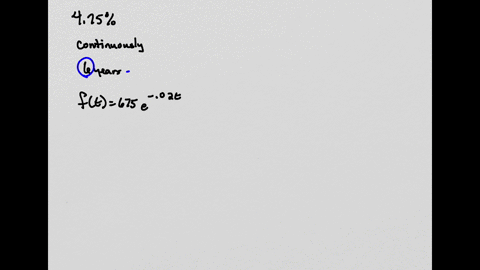 4.75%
continuously
6 years -
f(t)=675 e^-.02t